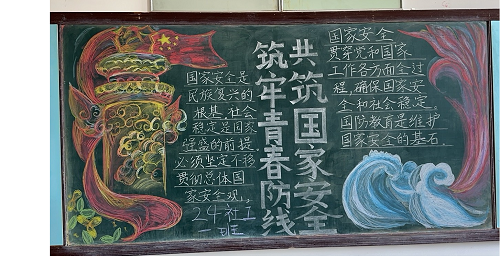 国家安全是
民族复兴的
根基,社会
稳定是国家
强盛的前提.
必须坚定不移
贯彻总体国
家安全观,
24社工
一班
共筑国家安全
筑牢青春防线
国家安全
贯穿党和国家
工作各方面全过
程,确保国家安
全和社会稳定。
国防教育是维护
国家安全的基石.